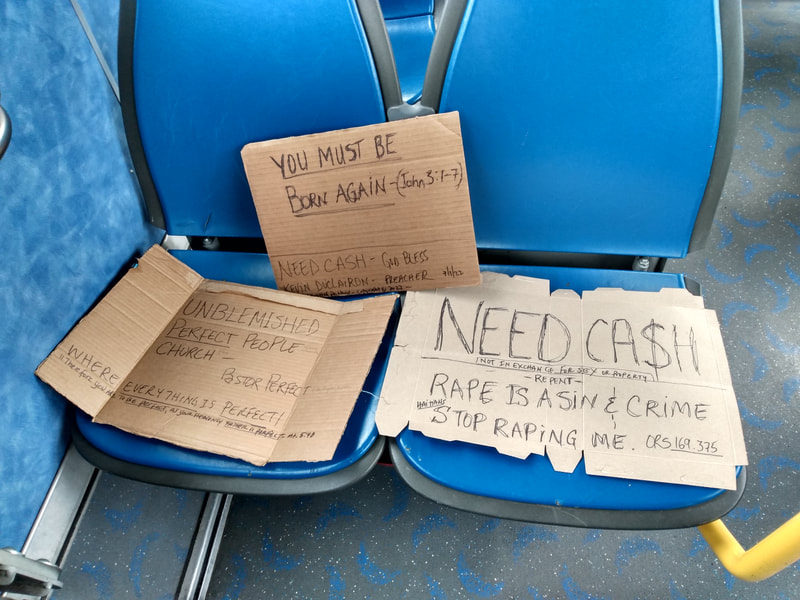 YOU MUST BE
BORN AGAIN-(John 3:1-7)
NEED CASH - GOD BLESS
KEVIN DUCLAIRON - PREACHER
UNBLEMISHED
PERFECT PEOPLE
CHURCH -
PASTOR PERFECT
WHERE
EVERYTHING IS PERFECT!
TO BE PERFECT, AS YOUR HEAVENLY FATHER IS PERFECT. Mt. 5:48
NEED CA$H
(NOT IN EXCHANGE FOR SEX OR PROPERTY)
- REPENT -
RAPE IS A SIN & CRIME
HAITIANS
STOP RAPING ME. ORS 169.375